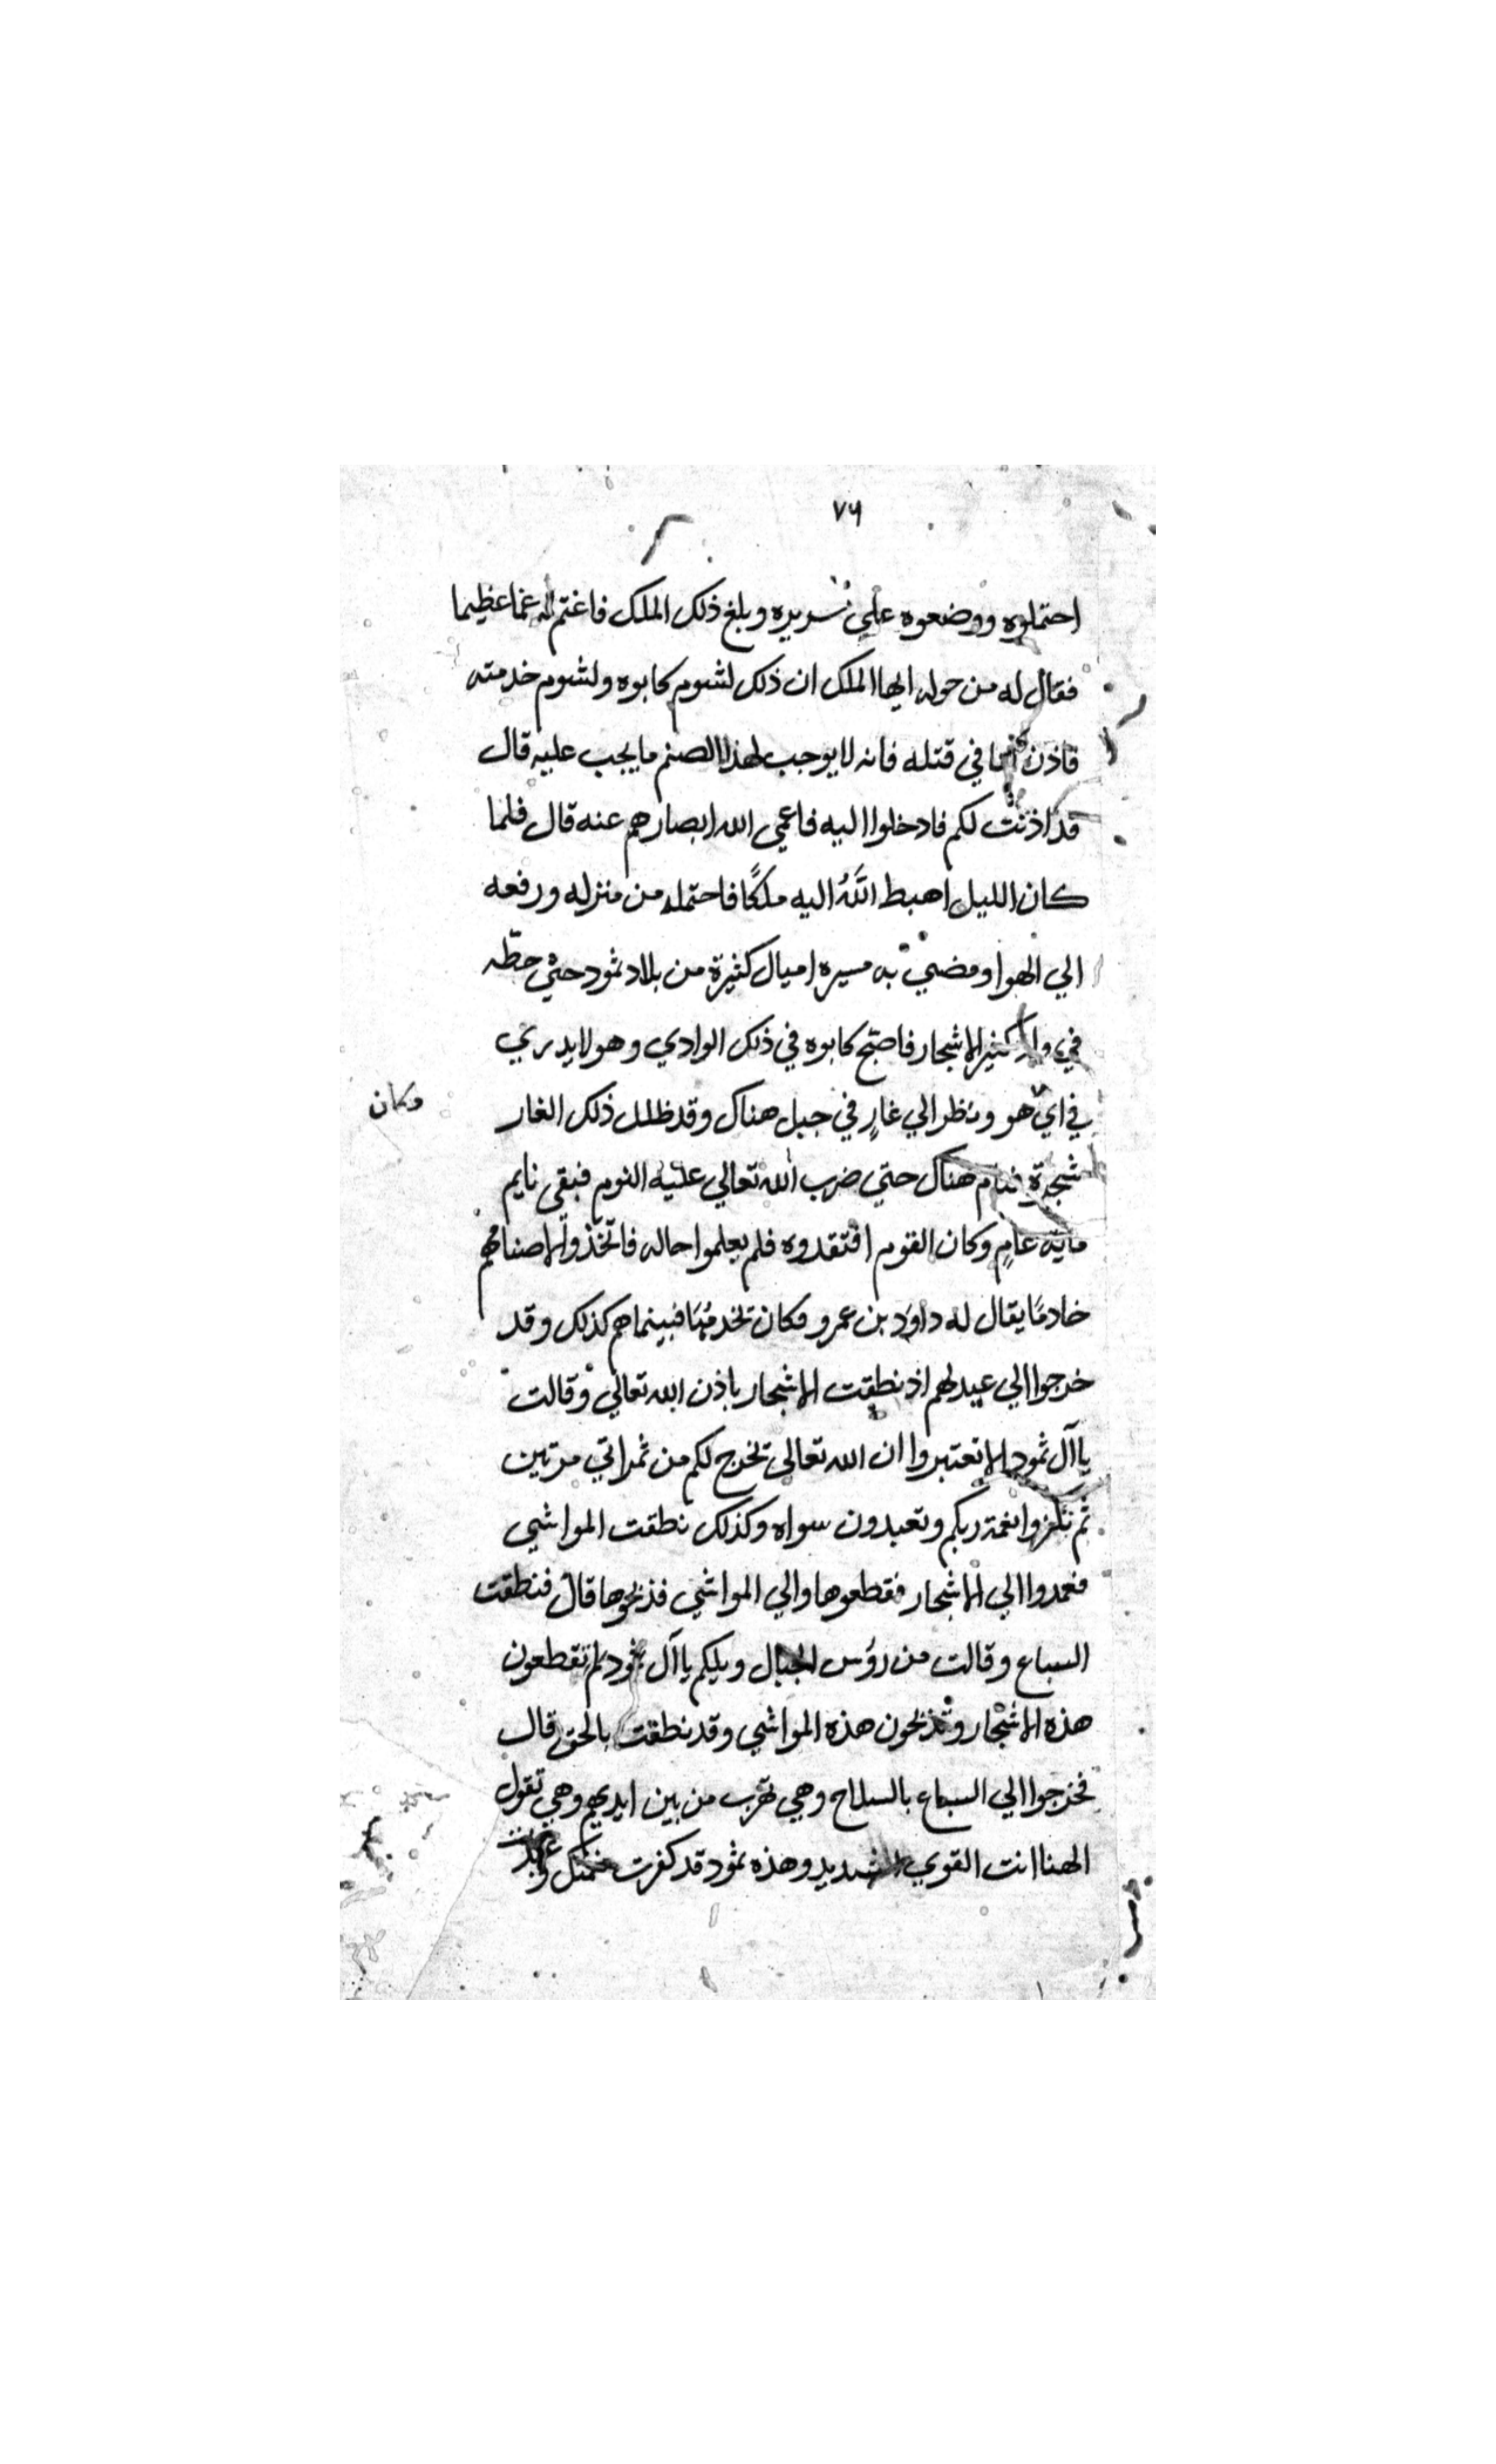 ٧٦
احتملوه ووضعوه علي سريره وبلغ ذلك الملك فاغتم له غما عظيما
فقال له من حوله ايها الملك ان ذلك لشوم كابوه ولشوم خدمته
فاذن لنا في قتله فانه لا يوجب لهذا الصنم ما يجب عليه قال
قد اذنت لكم فادخلوا اليه فاعمي الله ابصارهم عنه قال فلما
كان الليل اهبط اللَّهُ اليه ملكًا فاحتمله من منزله ورفعه
الي الهوا ومضي به مسيره اميال كثيرة من بلاد ثمود حتي حطّه
في واد كثير الاشجار فاصبح كابوه في ذلك الوادي وهو لا يدري
في اي هو ونظر الي غارٍ في جبل هناك وقد ظلل ذلك الغار
وكان
شجرة فنام هناك حتي ضرب الله تعالي عليه النوم فبقي نايم
ماية عامٍ وكان القوم افتقدوه فلم يعلموا حاله فاتّخذوا لاصنامهم
خادمًا يقال له داوَد بن عمرو فكان يخدمُهَا فبينما هم كذلك وقد
خرجوا الي عيد لهم اذ نطقت الاشجار باذن الله تعالي وقالت
يا آل ثمود الا تعتبروا ان الله تعالي يخرج لكم من ثمراتي مرتين
ثم تكفروا نعمة ربكم وتعبدون سواه وكذلك نطقت المواشي
فعمدوا الي الاشجار فقطعوها والي المواشي فذبحوها قال فنطقت
السباع وقالت من رؤس الجبال ويلكم يا آل ثمود لم تقطعون
هذه الاشجار وتذبحون هذه المواشي وقد نطقت بالحق قال
فخرجوا الي السباع بالسلاح وهي تهرب من بين ايديهم وهي تقول
الهنا انت القوي الشديد وهذه ثمود قد كفرت